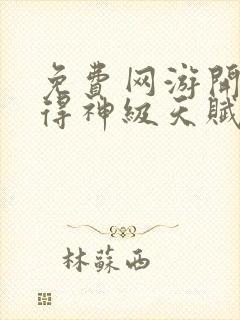 免費网游開
得神級天賦
林蘇西